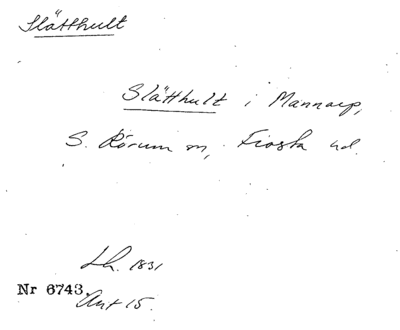 Slätthult
Slätthult i Mannarp,
S. Rörum sn, Frosta hd.
Lh. 1831
Nr 6743
Akt 15.